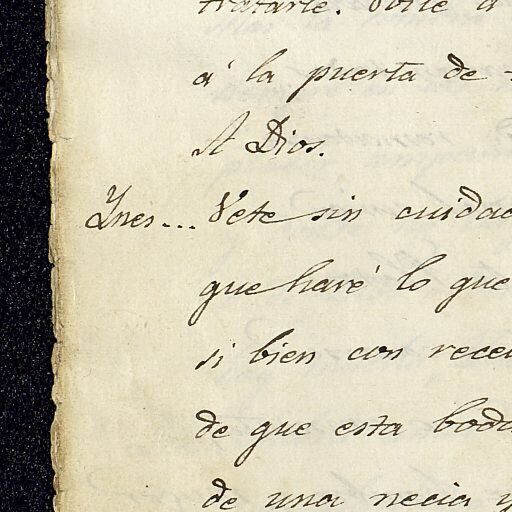 tratarle.
á la puerta de
A Dios.
Ynes... Vete sin cuidad
que haré lo que
si bien con rece
de que esta boda
de una necia y